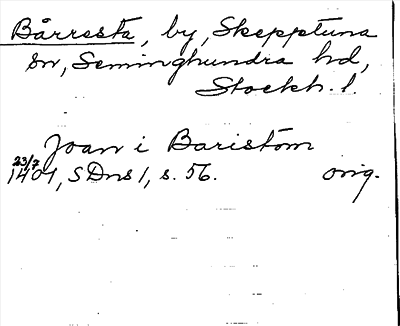 Bårresta, by, Skepptuna
sn, Seminghundra hd,
Stockh. l.
Joan i Baristom
23/7
1401, SDns 1, s. 56. orig.